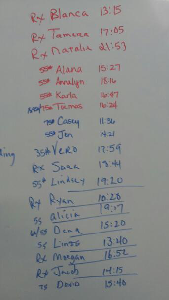 Rx Blanca 13:15
Rx Tamara 17:05
Rx Natalia 21:53
55# Alana 15:27
55# Annalyn 18:16
55# Karla 16:47
16:24
75# Casey 11:36
55# Jen
35# Vero 17:59
ing
Rx Sara 18:41
55# Lindsey 19:20
Rx Ryan 18:20
55 alicia 19:17
15:20
55 13:40
Rx Morgan 16:52
Rx Jacob 14:15
David 15:40